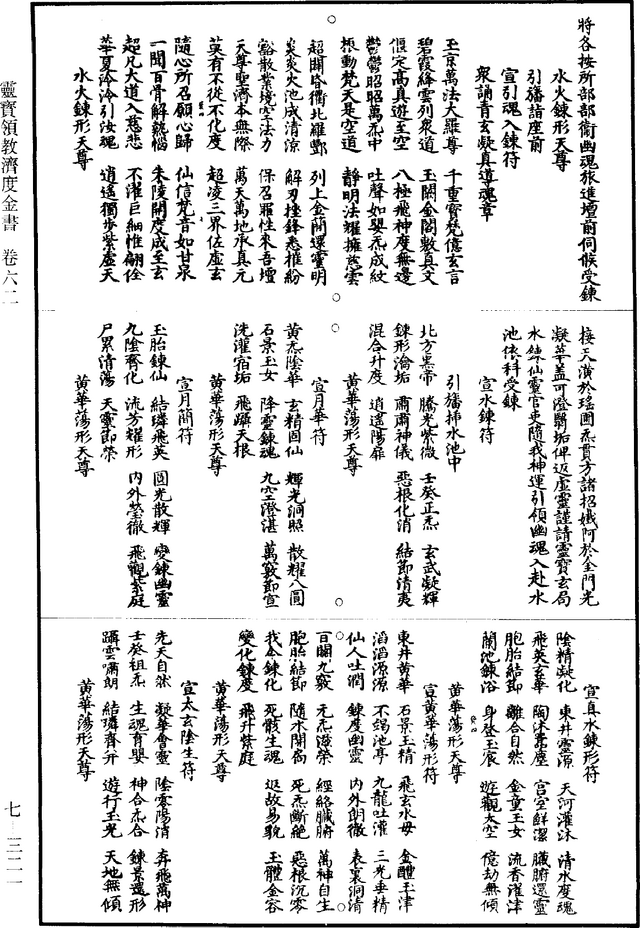 將各按所部部衛幽魂旅進壇前伺候受鍊
水火鍊形天尊
引旛詣座前
宣引魂入鍊符
衆誦青玄凝真導魂章
玉京萬法大羅尊 千重寶梵億玄言
碧霞絳雲列衆道 玉闕金閣敷真文
偃定高真遊至空 八極飛神度無邊
鬱鬱昭昭萬炁中 吐聲如嬰炁成紋
振動梵天是空道 靜明法耀擁慈雲
超闢昏衢北羅酆 列上金簡還靈明
炎炎火池成清涼 解刃挫鋒悉摧紛
豁散業境空法力 保召羅性來吾壇
天尊聖濟本無際 萬天萬地承真元
莫有不從不化度 超凌三界佐虛玄
隨心所召願心歸 仙信梵音如甘泉
一聞百骨解熱惱 朱陵開度成至玄
超凡大道入慈悲 不濯巨細惟翩佺
華夏泠泠引汝魂 逍遙獨步紫虛天
水火鍊形天尊
接天潢於瑤圃炁貫方諸招孅阿於金門光
凝華蓋可澄翳垢俾返虛靈謹請靈寶玄局
水鍊仙靈官吏隨我神運引領幽魂入赴水
池依科受鍊
宣水鍊符
引旛揷水池中
北方黑帝 騰光紫微 壬癸正炁 玄武凝輝
鍊形瀹垢 肅肅神儀 惡根化消 結節清夷
混合升度 逍遙陽扉
黄華蕩形天尊
宣月華符
黄炁陰華 玄精固仙 輝光洞照 散耀八圓
石景玉女 降靈鍊魂 九空澄湛 萬竅節宣
洗濯宿垢 飛躋天根
黄華蕩形天尊
宣月簡符
玉胎鍊仙 結璘飛英 圓光散輝 變鍊幽靈
九陰齊化 流芳耀形 內外瑩徹 飛觀紫庭
尸累清蕩 天靈即榮
黄華蕩形天尊
宣真水鍊形符
陰精凝化 東井靈源 天河灌沐 清水度魂
飛英玄華 陶沐藂塵 宮室鮮潔 臟腑還靈
胞胎結節 離合自然 金童玉女 流香濯津
蘭池鍊浴 身登玉晨 遊觀太空 億劫無傾
黄華蕩形天尊
宣黄華蕩形符
東井黄華 石景玉精 飛玄水母 金醴玉津
滔滔源源 不竭池亭 九龍吐灌 三光垂精
仙人吐濶 鍊度幽靈 內外朗徹 表裏洞清
百關九竅 元炁滋榮 經絡臟腑 萬神自生
胞胎結節 隨水開肩 死炁斷絕 惡根沉零
我今鍊化 死骸生魂 返故易貌 玉體金容
變化鍊度 飛升紫庭
黄華蕩形天尊
宣太玄陰生符
先天自然 凝華會靈 陰零陽消 奔飛萬神
壬癸祖炁 生魂育嬰 神合炁合 鍊景還形
躡雲嘯朗 結璘齊并 遊行玉光 天地無傾
黄華蕩形天尊
靈寶領教濟度金書 卷六二
七—三二一